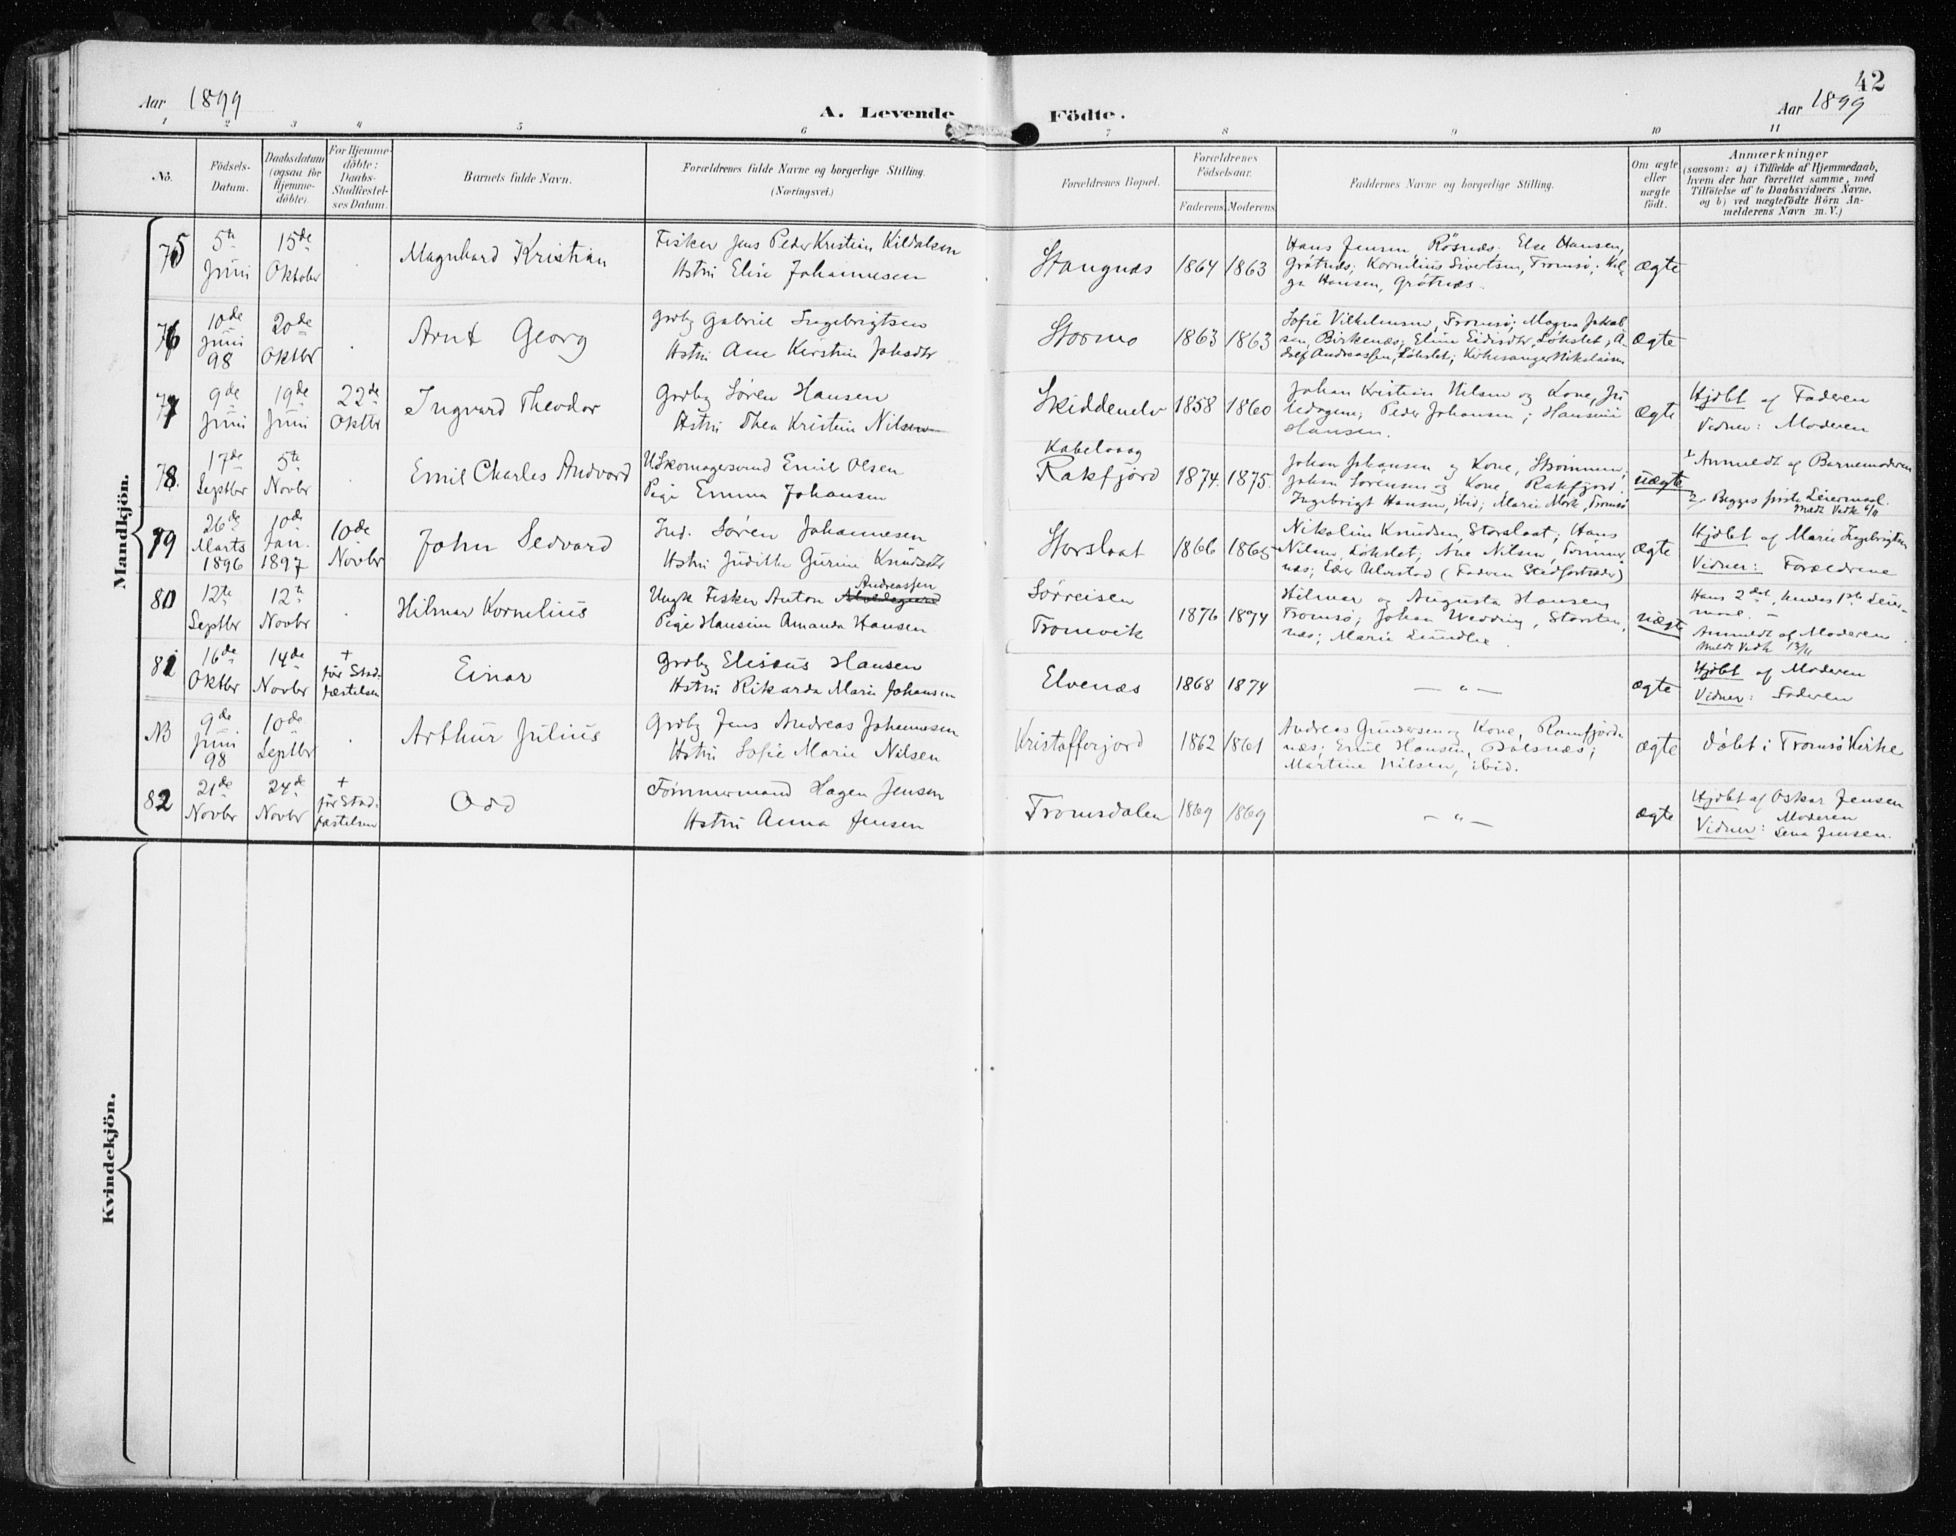 42
Aar 1899
A. Levende Födte.
Aar 1899
1 2 3 4 5 6 7 8 9 10 11
No.
Födsels-
Datum.
Daabsdatum
(ogsaa for
Hjemme-
döbte).
For Hjemme-
döbte:
Daabs-
Stadfæstel-
ses Datum.
Barnets fulde Navn.
Forældrenes fulde Navne og borgerlige Stilling.
(Næringsvei.)
Forældrenes Bopæl.
Forældrenes
Födselsaar.
Faderens Moderens
Faddernes Navne og borgerlige Stilling.
Om ægte
eller
uægte
födt.
Anmærkninger
(saasom: a) i Tilfælde af Hjemmedaab,
hvem der har forrettet samme, med
Tilföielse af to Daabsvidners Navne,
og b) ved uægtefödte Börn An-
melderens Navn m. V.)
Mandkjön.
75
5te
Juni
15de
Oktober
Magnhard Kristian
Fisker Jens Peder Kristian Kildalsen
Hstru Elise Johannesen
Stangnæs
1864 1863
Hans Jensen Røsnæs; Else Hansen,
Grøtnæs; Kornelius Sivertsen, Tromsø; Hel-
ga Hansen, Grøtnæs.
ægte
76
10de
Juni
98
20de
Oktbr
Arnt Georg
Grdbr Gabriel Ingebrigtsen
Hstru Ane Kirstine Johsdtr
Stormo
1863 1863
Sofie Vilhelmsen, Tromsø; Magna Jakob-
sen, Birkenæs; Eline Eidisdtr, Løkslet; A-
dolf Andreassen, Løkslet; Kirkesanger Nikolaisen
ægte
77
9de
Juni
19de
Juni
22de
Oktbr
Ingvard Theodor
Grdbr Søren Hansen
Hstru Thea Kristine Nilsen
Skiddenelv
1858 1860
Johan Kristian Nilsen og Kone,
Peder Johansen; Hansine
Hansen.
ægte
Hjdbt af Faderen
Vidner: Moderen
78.
17de
Septbr
5te
Novbr
Emil Charles Andvord
U Skomagersvend Emil Olsen
Pige Emma Johansen
Kabelvaag
Rakfjord
1874. 1875.
Johan Johansen og Kone, Strømmen;
Johan Sørensen og Kone, Rakfjord;
Ingebrigt Hansen, ibid; Marie Mork, Tromsø
uægte
1. Anmeldt af Barnemoderen
2. Begges første Leiermaal
Meldt Vedk 6/11
79
26de
Marts
1896
10de
Jan.
1897
10de
Novbr
John Sedvard
Ind. Søren Johannesen
Hstru Judithe Gurine Knudsdtr
Storslaat
1866 1865
Nikoline Knudsen, Storslaat; Hans
Nilsen, Løkslet; Ane Nilsen, Tømmer-
næs; Eder Ulvrstad (Faderen Stedfortræder)
ægte
Hjdbt af Marie Ingebrigtsen
Vidner: Forældrene
80
12te
Septbr
12te
Novbr
Hilmar Kornelius
Andreassen
Ungk Fisker Anton
Pige Hansine Amanda Hansen
Sørreisen
Tromvik
1876 1874
Hilmar og Augusta Hansen
Tromsø; Johan Wedding, Storsten-
næs; Marie Lundlie.
uægte
Hans 2det, hendes 1ste Leier-
maal.
Anmeldt af Moderen
Meldt Vedk 13/11
81
16de
Oktbr
14de
Novbr
+
før Stad-
fæstelsen
Einar
Grdbr Elisæus Hansen
Hstru Rikarda Marie Johansen
Elvenæs
1868 1874
— „ —
ægte
Hjdbt af Moderen
Vidner: Faderen
NB
9de
Juni
98
10de
Septbr
Arthur Julius
Grdbr Jens Andreas Johannesen
Hstru Sofie Marie Nilsen
Kristofferjord
1862 1861
Andreas Gundersen og Kone, Ramfjord-
næs; Emil Hansen, Balsnæs;
Martine Nilsen, ibid.
ægte
Døbt i Tromsø Kirke
82
21de
Novbr
24de
Novbr
+
før Stad-
fæstelsen
Odd
Tømmermand Hagen Jensen
Hstru Anna Jensen
Tromsdalen
1869 1869
— „ —
ægte
Hjdbt af Oskar Jensen
Vidner: Moderen
Lena Jensen.
Kvindekjön.